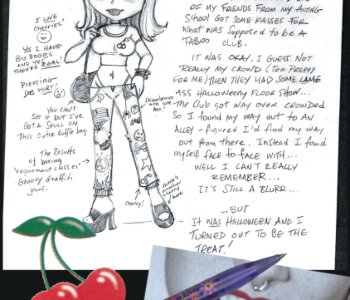 I LOVE
cherries!
Yes I HAVE
BIG BOOBS
AND YES
THEY'RE REAL!
PIERCING
DID HURT!
YOU CAN'T
SEE IT BUT I'VE
GOT A SKULL ON
THIS CUTIE COFFIN BAG
THE RESULTS
OF BORING
"requirement classes!"
Groovy Graffiti
jeans.
Drawstrings
are cute
too!
Cherry!
there's
cherry
here
OF MY FRIENDS FROM MY ACTING
SCHOOL GOT SOME PASSES FOR
WHAT WAS SUPPOSED TO BE A
TABOO CLUB.
IT WAS OKAY, I GUESS. NOT
REALLY MY CROWD (TOO PREPPY
FOR ME) THEN THEY HAD SOME LAME
ASS HALLOWEENY FLOOR SHOW...
THE CLUB GOT WAY OVER CROWDED
SO I FOUND MY WAY OUT TO AN
ALLEY - FIGURED I'D FIND MY WAY
OUT FROM THERE. INSTEAD I FOUND
MYSELF FACE TO FACE WITH...
WELL I CAN'T REALLY
REMEMBER...
IT'S STILL A BLURR...
...BUT
IT WAS HALLOWEEN AND I
TURNED OUT TO BE THE
TREAT!